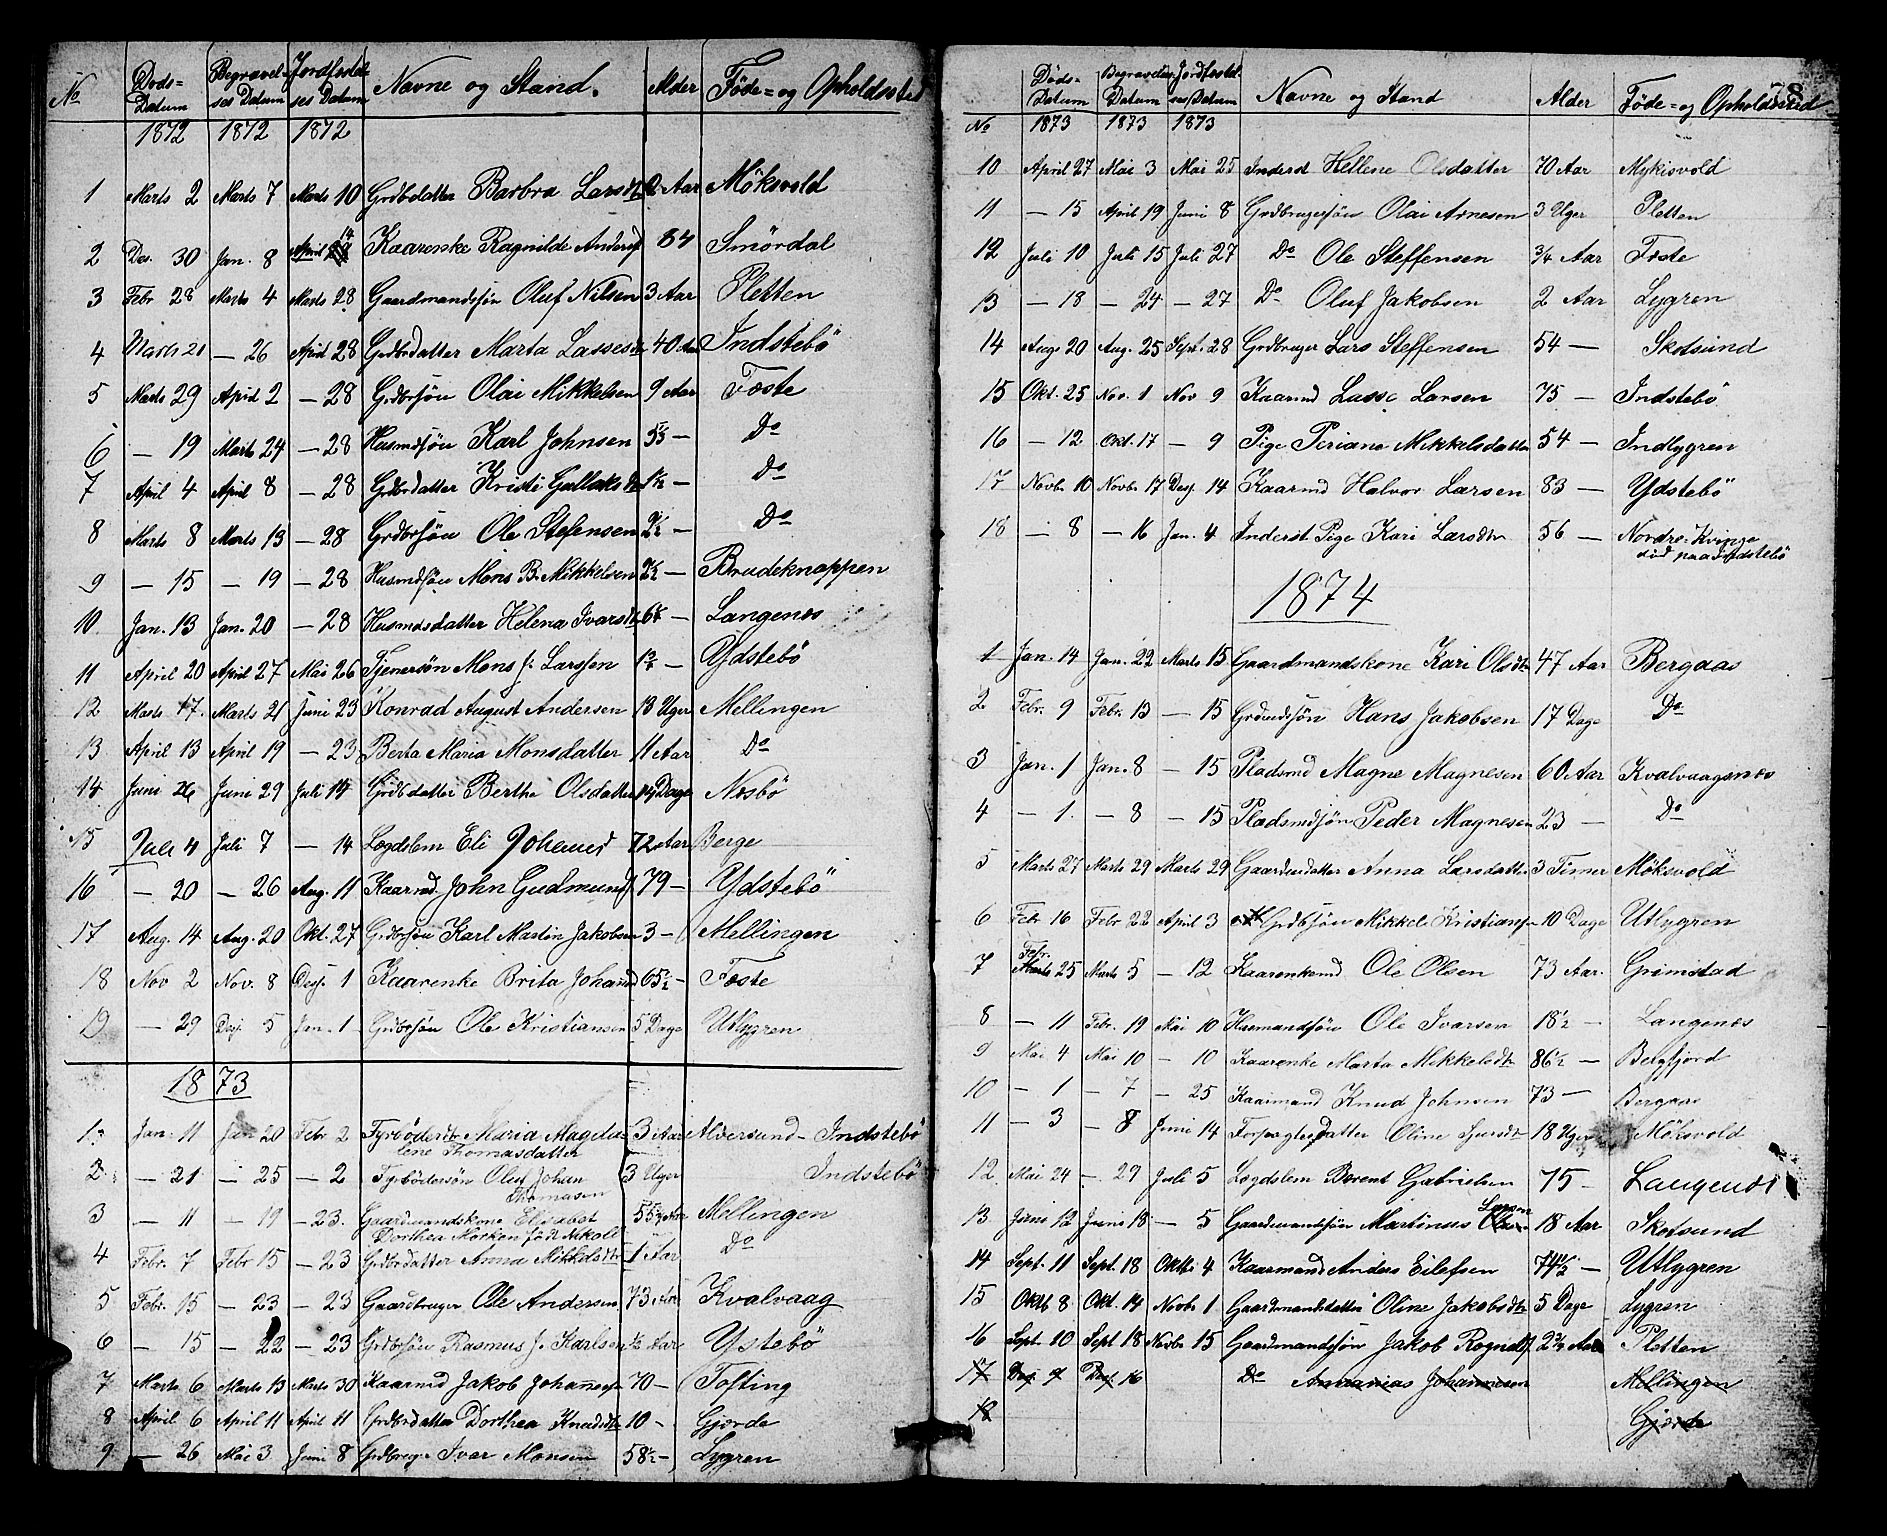 No Döds= Datum Begravel= ses Datum Jordfestel= ses Datum Navne og Stand. Alder Föde= og Opholdssted
1872 1872 1872
1 Marts 2 Marts 7 Marts 10 Grdbdatter Barbra Larsdt Aar Möksvold
2 Des. 30 Jan. 8 April 14 Kaarenke Ragnilde Andersd 84 Smördal
3 Febr 28 Marts 4 Marts 28 Gaardmandssön Oluf Nilsen 3 Aar Pletten
4 Marts 21 — 26 April 28 Grdbrdatter Marta Lassesdtr 40 Aar Indstebö
5 Marts 29 April 2 — 28 Grdbrsön Olai Mikkelsen 9 Aar Foste
6 — 19 Marts 24 — 28 Husmdsön Karl Johnsen — Do
7 April 4 April 8 — 28 Grdbrdatter Kristi 1½ — Do
8 Marts 8 Marts 13 — 28 Grdbrsön Ole Stefensen — Do
9 — 15 — 19 — 28 Husmdsön Mons B. Mikkelsen — Brudeknappen
10. Jan. 13 Jan. 20 — 28 Husmdsdatter Helena Ivarsdtr — Langenes
11 April 20 April 27 Mai 26 Tjenersön Mons J. Larssen — Ydstebö
12 Marts 17. Marts 21 Juni 23 Konrad August Andersen 13 Uger Mellingen
13 April 13 April 19 — 23 Berta Maria Monsdatter 11 Aar Do
14 Juni 26 Juni 29 Juli 14 Grdbdatter Berthe Olsdatter 14 Dage Nesbö
15 Juli 4 Juli 7 — 14 Lægdslem Eli Johanesd 72 Aar Berge
16 — 20 — 26 Aug. 11 Kaarmd. John Gudmunds 79 — Ydstebö
17 Aug. 14 Aug. 20 Okt. 27 Grdbrsön Karl Martin Jakobsen 3 — Mellingen
18 Nov 2 Nov. 8 Desb. 1 Kaarenke Brita Johannd 65½ — Foste
19 — 29 Desb. 5 Jan. 1 Grdbrsön Ole Kristiansen 5 Dage Utlygren
1873
1. Jan. 11 Jan 20 Febr 2 Fyrbödedtr Maria Magda= 3 Aar Alversund — Indstebö
lene Thomasdatter
2. — 21 — 25 — 2 Fyrbödersön Oluf Johan 3 Uger Indstebö
Thomasen
3 — 11 — 19 — 23. Gaardmandskone Elisabet 55 Aar Mellingen
Dorthea Morken föd Nikoll
4 Febr. 7 Febr 15 — 23 Grdbrdatter Anna Mikkelsdtr 1 Aar Do
5 Febr. 15 — 23 — 23 Gaardbruger Ole Andersen 73 Aar Kvalvaag
6 — 15 — 22 — 23 Grdbrsön Rasmus J. Karlsen ½ Aar Ystebö
7 Marts 6 Marts 13 Marts 30 Kaarmd Jakob Johannesen 70 — Tofting
8 April 6 April 11 April 11 Grdbrdatter Dorthea Knudsdtr 10 — Gjerde
9 — 26 Mai 3 Juni 8 Grdbruger Ivar Monsen 58½ — Lygren
78
Döds= Datum Begravelses Datum Jordfestel= ses Datum Navne og Stand Alder Föde= og Opholdssted
No 1873 1873 1873
10 April 27 Mai 3 Mai 25 Inderst Hellene Olsdatter 70 Aar Mykisvold
11 — 15 April 19 Juni 8 Grdbrugersön Olai Arnesen 3 Uger Pletten
12 Juli 10 Juli 15 Juli 27 Do Ole Steffensen ¾ Aar Foste
13 — 18 — 24 — 27 Do Oluf Jakobsen 2 Aar Lygren
14 Aug. 20 Aug. 25 Sept. 28 Grdbruger Lars Steffensen 54 — Skotsund
15 Okt. 25 Nov. 1 Nov 9 Kaarmd Lasse Larsen 75 — Indstebö
16 — 12 Okt. 17 — 9 Pige Periane Mikkelsdatter 54 — Indlygren
17 Novbr 10 Novbr 17 Desb. 14 Kaarmd Halvor Larsen 83 — Ydstebö
18 — 8 — 16 Jan. 4 Inderst Pige Kari Larsdtr 56 — Nordre Kvinge
död paa Indstebö
1874
1 Jan. 14 Jan. 22 Marts 15 Gaardmandskone Kari Olsdtr 47 Aar Bergaas
2 Febr. 9 Febr. 13 — 15 Grdmdsön Hans Jakobsen 17 Dage Do
3 Jan. 1 Jan. 8 — 15 Pladsmd Magne Magnesen 60 Aar Kvalvaagsnes
4 — 1. — 8 — 15 Pladsmdsön Peder Magnesen 23 — Do
5 Marts 27 Marts 29 Marts 29 Gaardmdatter Anna Larsdatter 3 Timer Möksvold
6 Febr. 16 Febr 22 April 3 Grdbsön Mikkel Kristians 10 Dage Utlygren
7 Febr. Marts 25 Marts 5 — 12 Kaarenkemd Ole Olsen 73 Aar. Grimstad
8 — 11 Febr. 19 Mai 10 Husmandssön Ole Ivarsen 18½ — Langenes
9 Mai 4 Mai 10 — 10 Kaarenke Marta Mikkelsdtr 86½ — Bergfjord
10 — 1 — 7 — 25 Kaarmand Knud Johnsen 73 — Bergaas
11 — 3 — 8 Juni 14 Forpagterdatter Oline Sjursdtr 18 Uger Möksvold
12 Mai 24 — 29 Juli 5 Lægdslem Berent Gabrielsen 75 — Langenes
13 Juni 12 Juni 18 — 5 Gaardmandsön Martinus Larsen 18 Aar Skotsund
14 Sept. 11 Sept. 18 Oktbr 4 Kaarmand Anders Eilefsen 74½ — Utlygren
15 Oktb 8 Okt. 14 Novbr 1 Gaardmandsdatter Oline Jakobsdtr 5 Dage Lygren
16 Sept. 10 Sept 18 Novbr 15 Gaardmandsön Jakob Rognald Aar Pletten
17 Desb 9 Desb. 16 Do Annanias Johannesen Mellingen
18 Gjerde